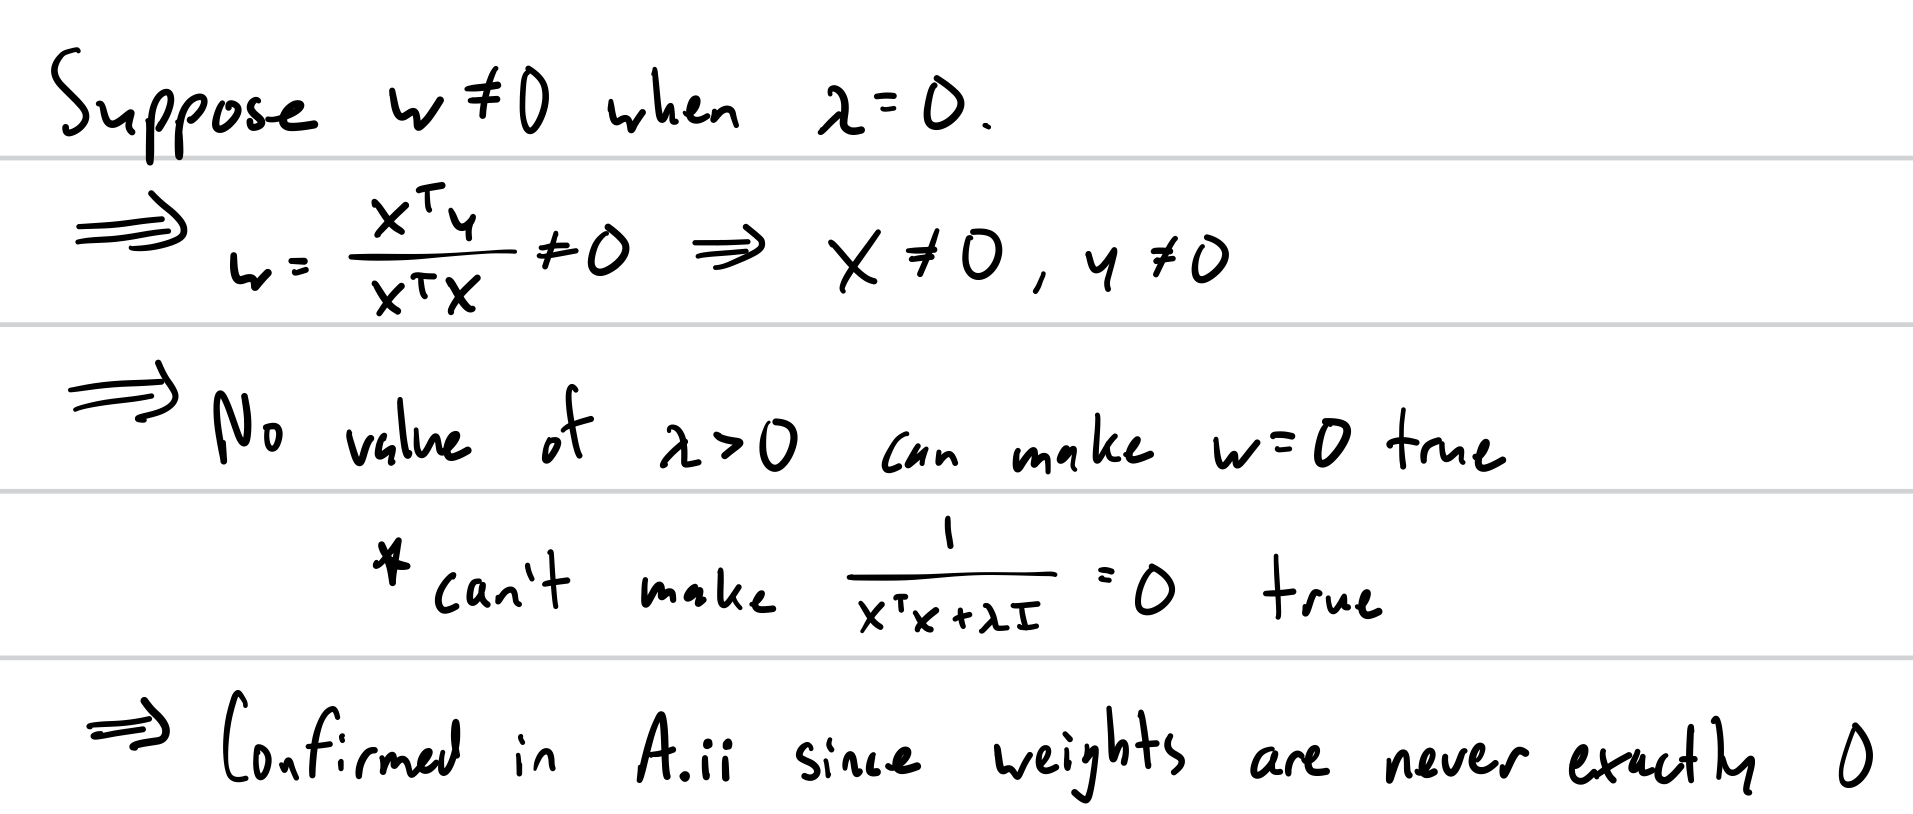 Suppose w ≠ 0 when λ = 0.
⟹ w = xᵀy / xᵀx ≠ 0 ⟹ x ≠ 0, y ≠ 0
⟹ No value of λ > 0 can make w = 0 true
* can't make 1 / (xᵀx + λI) = 0 true
⟹ Confirmed in A.ii since weights are never exactly 0